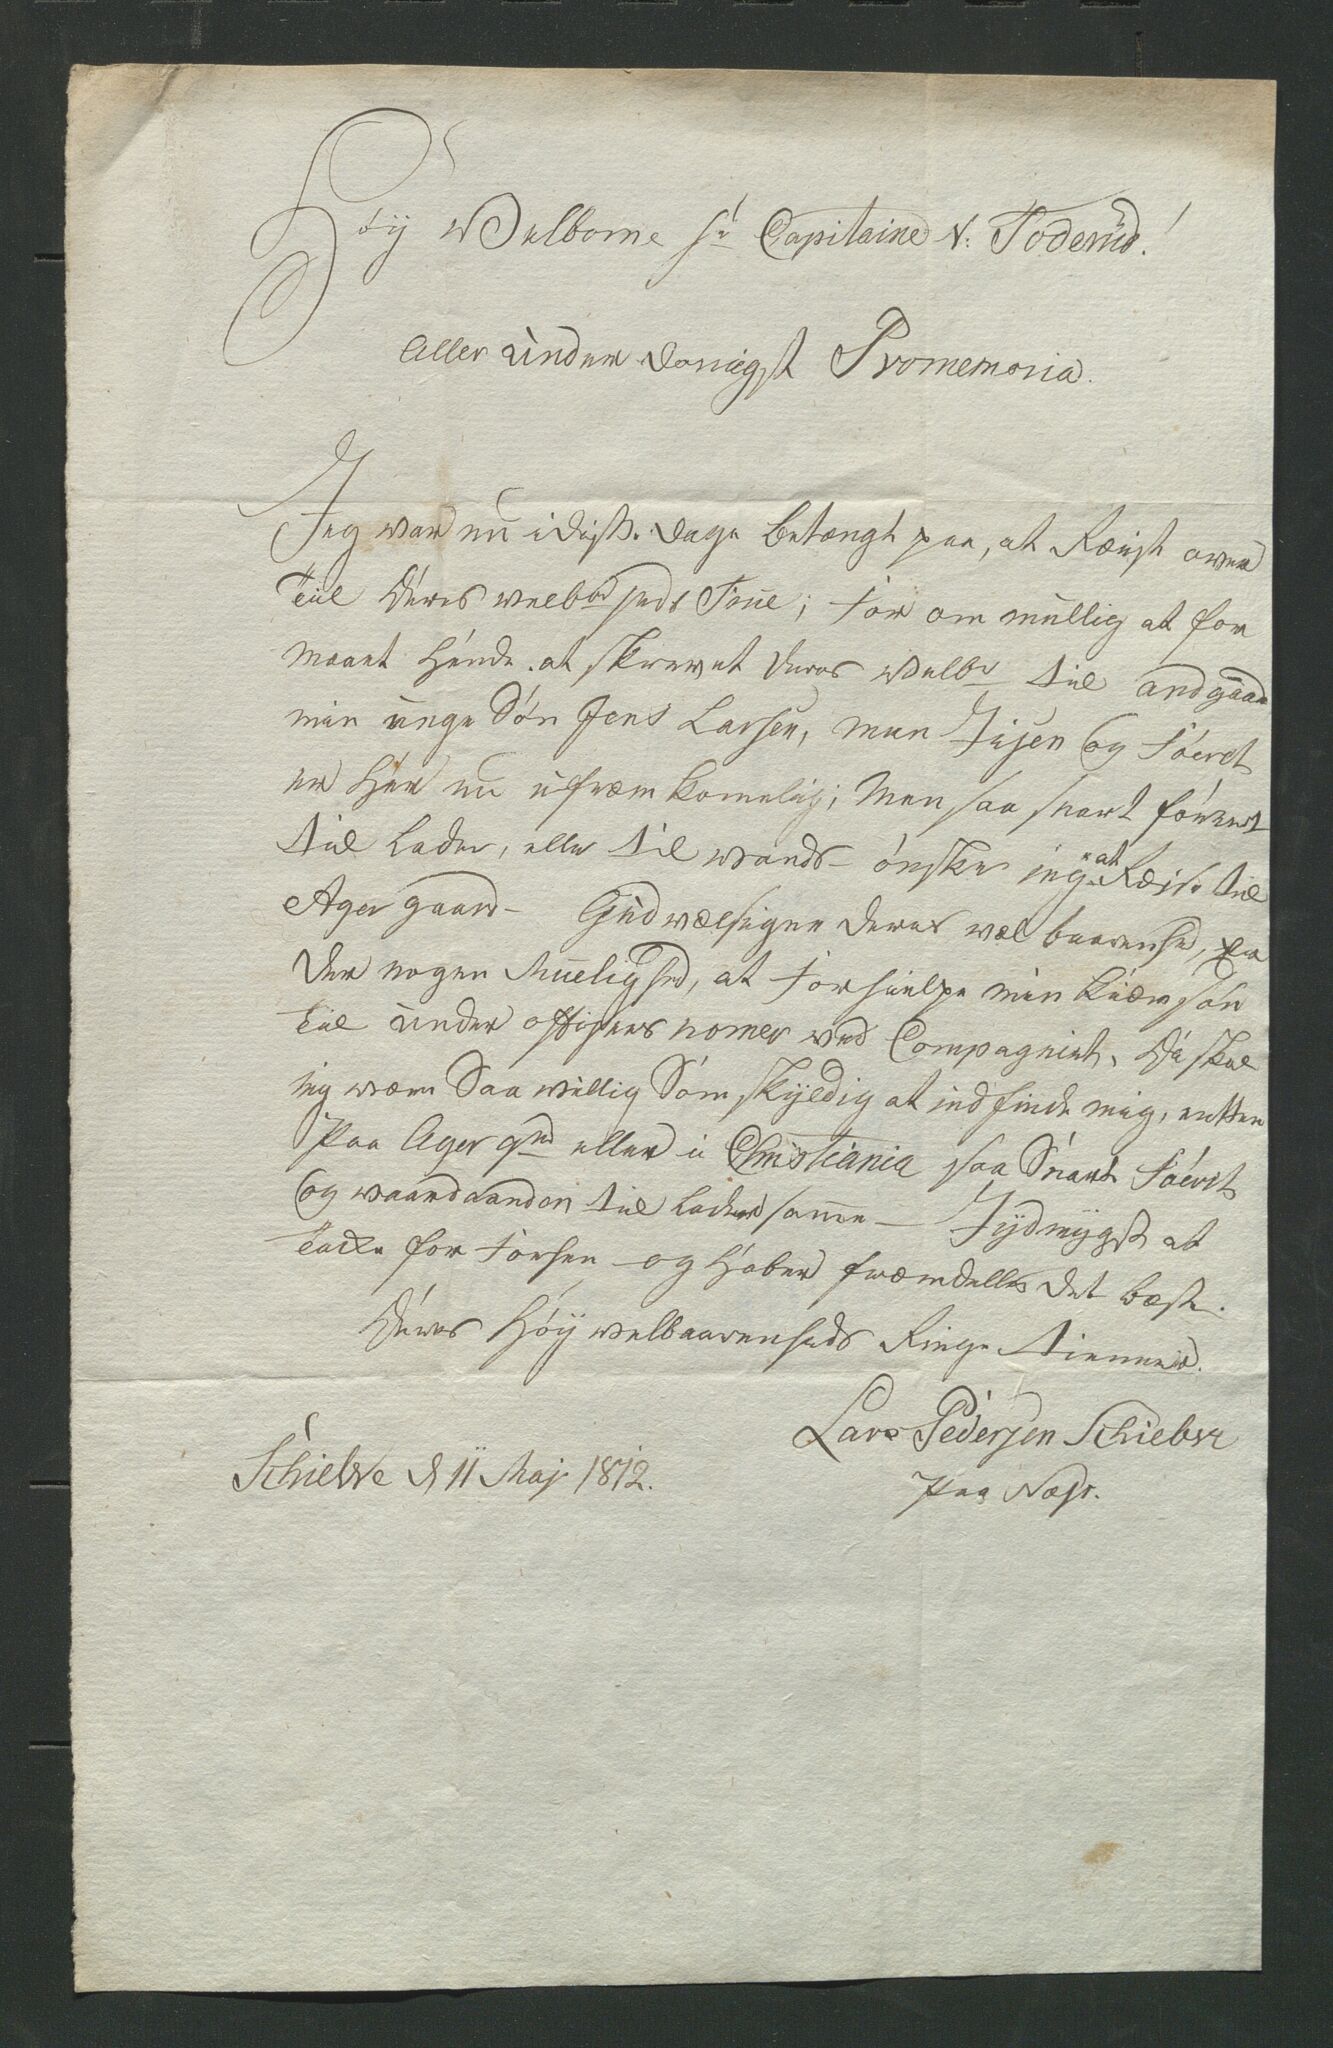 Høy Welborne Hr Capitaine v: Toderud!
Aller underdanigst Promemoria.
Jeg war nu i disse dage betængt paa, at Ræist ower
Til Deres welbrdheds Frue; for om mullig at for
maaet Hende at skrewet Deres Welbr til andgaaend
min unge Søn Jens Larsen, men Jisen og Føeret
er Her nu ufræmkomelig; Men saa snart føreret
til Lader, eller til wands ønsker jeg at Ræise til
Ager gaard – Gud wælsigne Deres wælbaarenhed, er
der nogen Muelighed, at forhielpe min kiære søn
til under offisers nomer wed Compagniet, Da skal
jeg wære Saa willig Som skyldig at indfinde mig, entten
Paa Ager grd eller i Christiania saa Snart Føeret
og waandaanden til lader samme – Jydmygst at
takke for forhen – og Haber fræmdelles det bæste.
Deres Høy welbaarenheds Ringe tienner.
Lars Pedersen Schielwe
Paa Næss.
Schielwe d 11 Maj 1812.